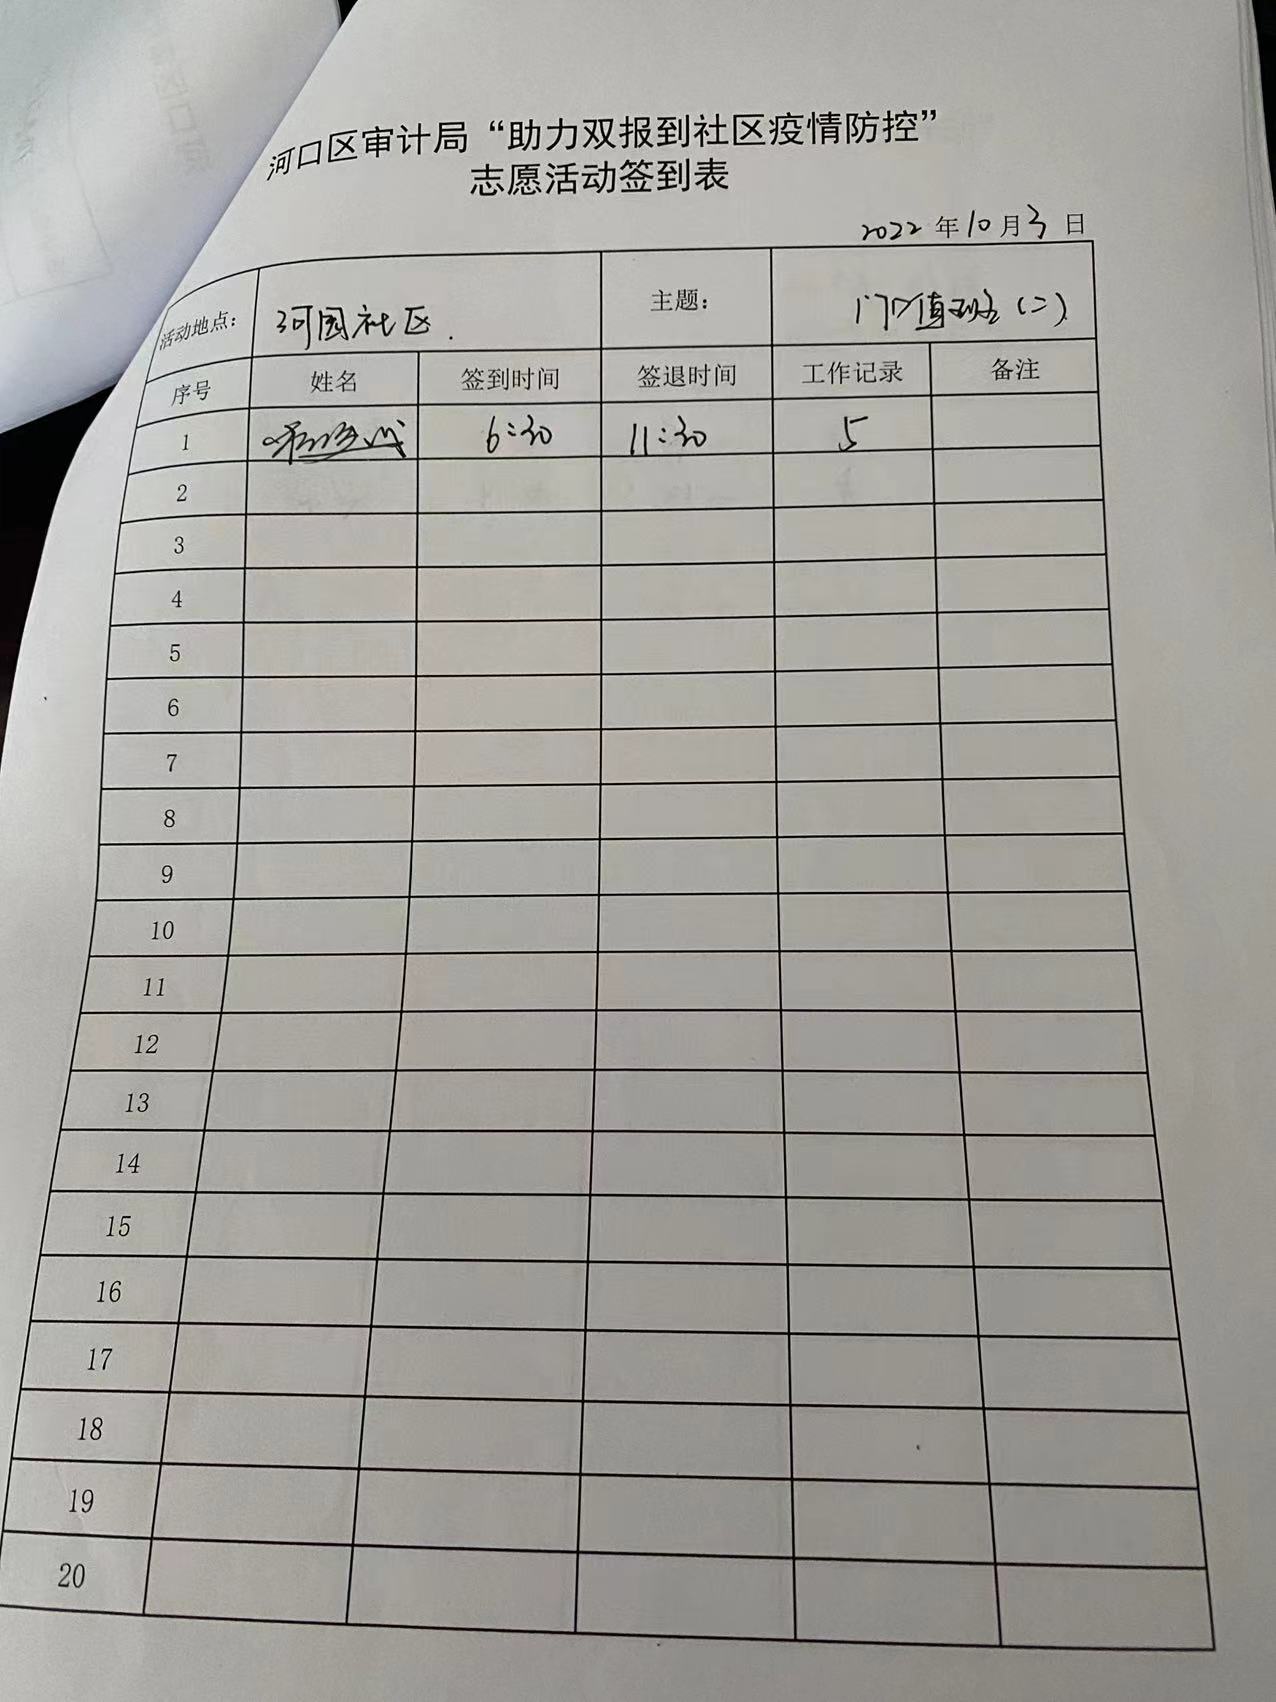 河口区审计局“助力双报到社区疫情防控”
志愿活动签到表
2022 年 10 月 3 日
活动地点: 河园社区. 主题: 门口值班(二)
序号 姓名 签到时间 签退时间 工作记录 备注
1 6:30 11:30 5
2
3
4
5
6
7
8
9
10
11
12
13
14
15
16
17
18
19
20